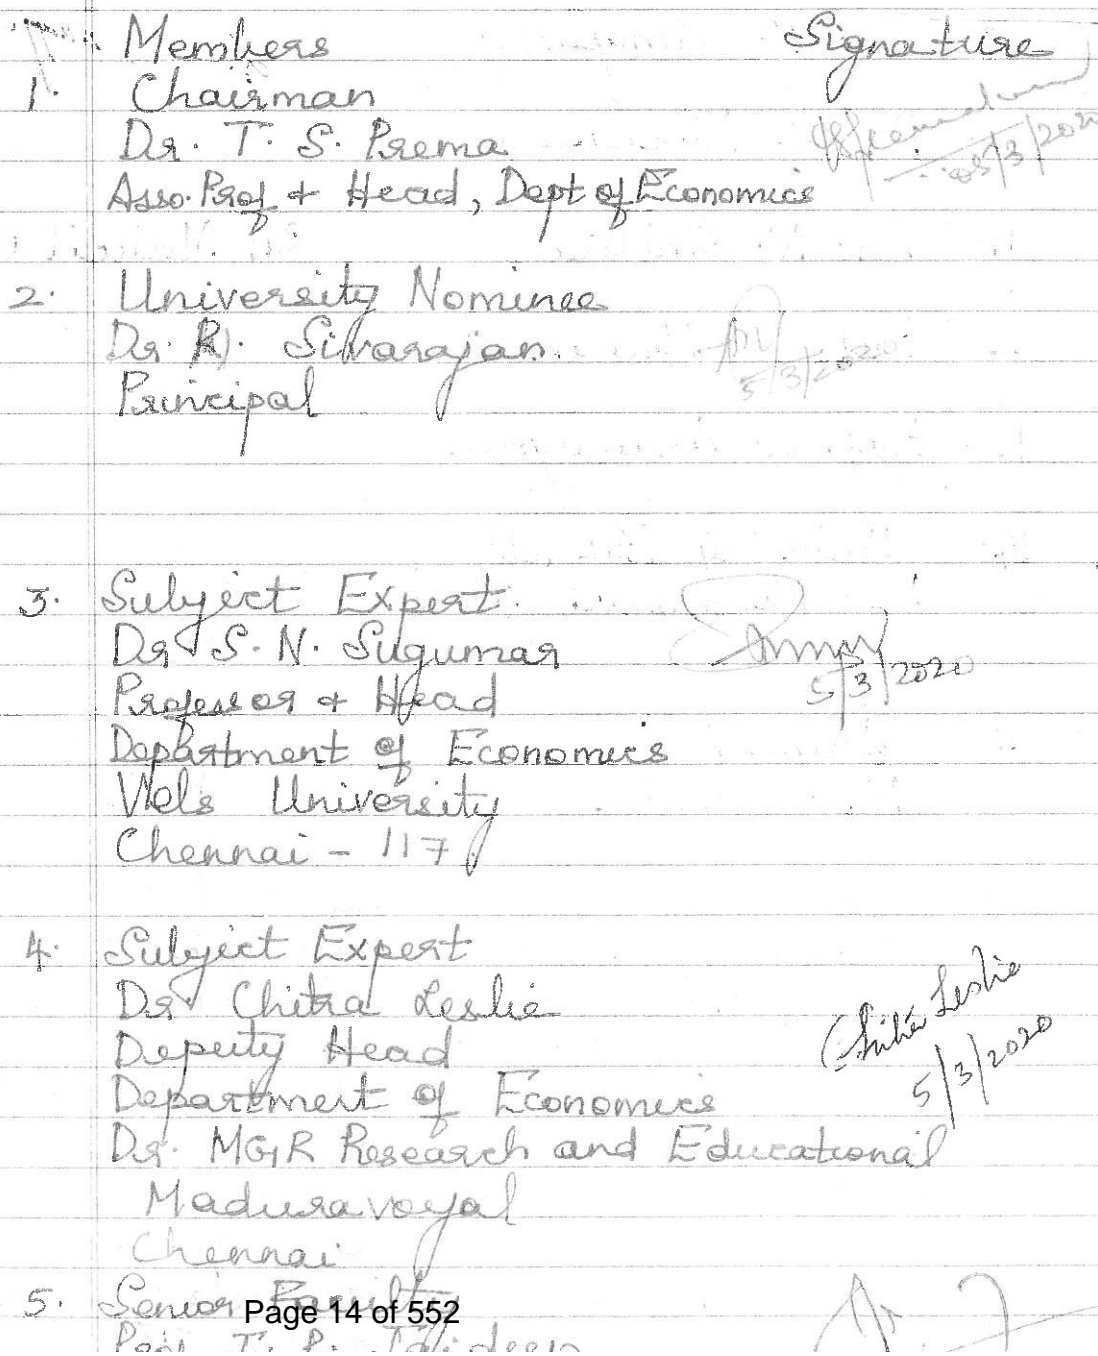 Members Signature
1. Chairman
Dr. T. S. Prema
05/3/2020
Asso. Prof & Head, Dept of Economics
2. University Nominee
Dr. R. Sivarajan
5/3/2020
Principal
3. Subject Expert
Dr S. N. Sugumar
5/3/2020
Professor & Head
Department of Economics
Vels University
Chennai - 117
4. Subject Expert
Dr Chitra Leslie
Chitra Leslie
5/3/2020
Deputy Head
Department of Economics
Dr. MGR Research and Educational
Maduravoyal
Chennai
5. Senior Faculty
Page 14 of 552
Prof. T. P. Jaideep